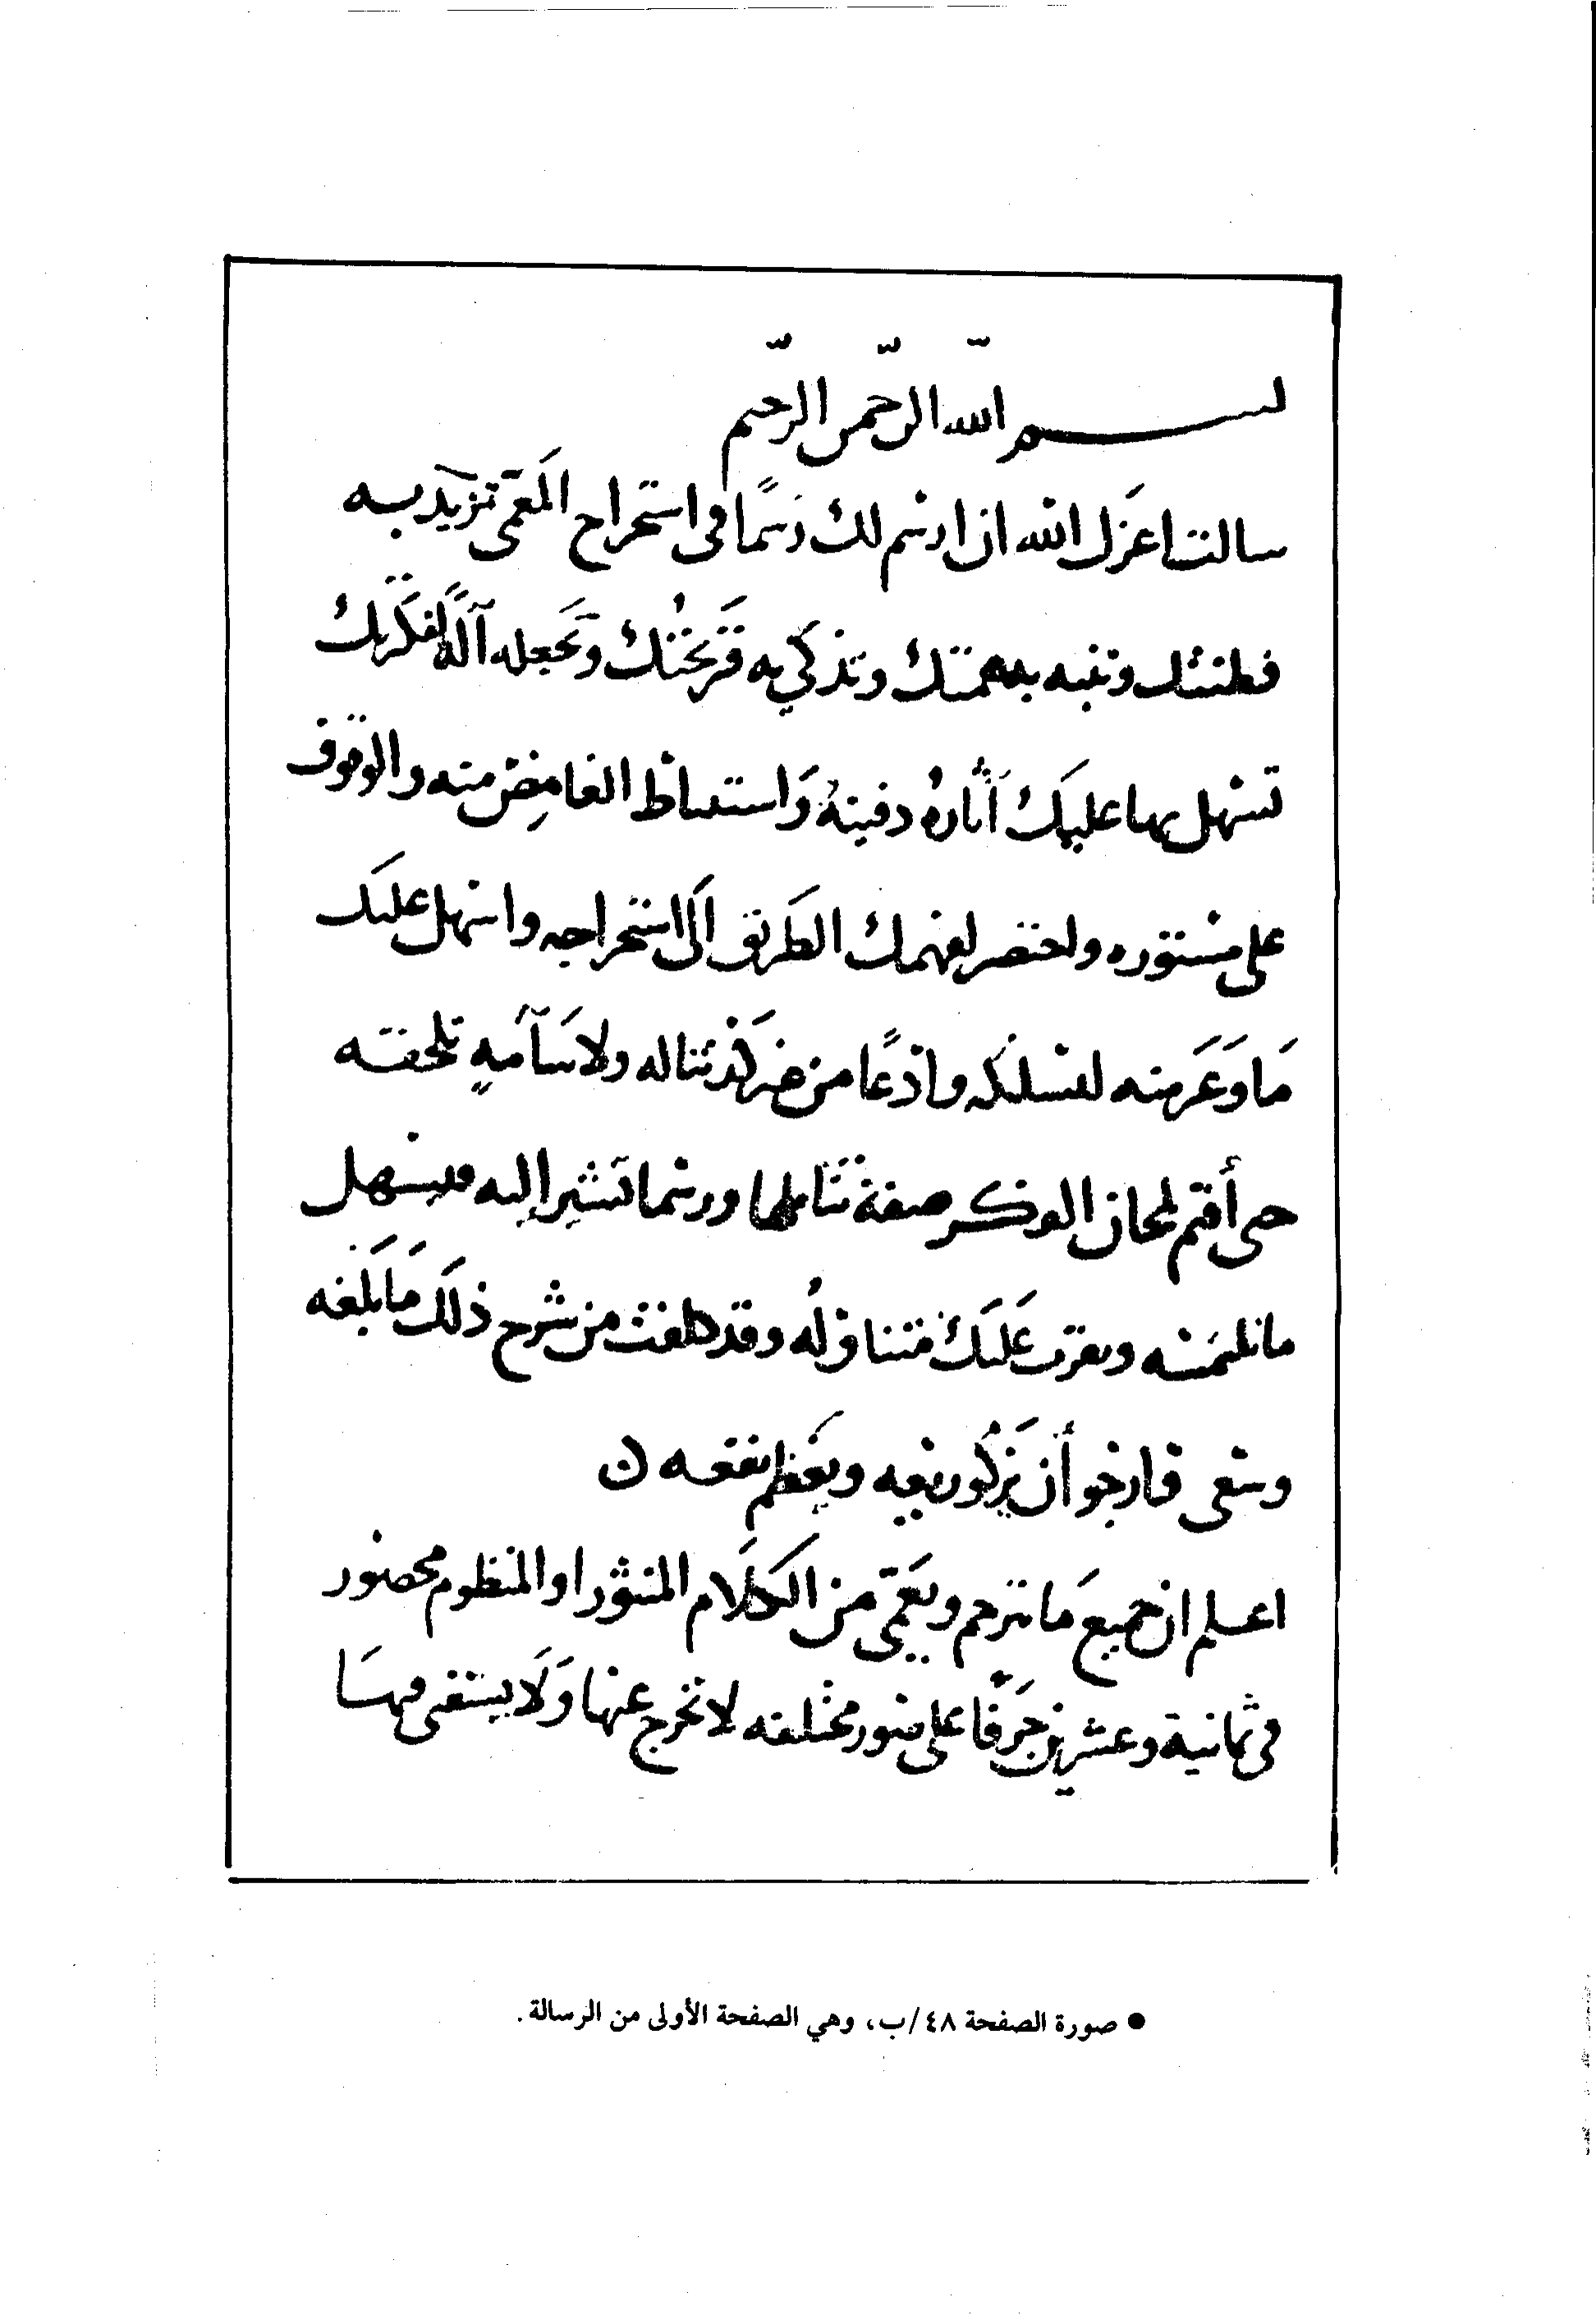 بسم الله الرحمن الرحيم
سالت اعزك الله ان ارسم لك رسمًا في استخراج المعمى تزيد به
فطنتك وتنبه به همتك وتذكي به قريحتك وتجعله آلةً لفكرتك
تسهل بها عليك اثارة دفينه واستنباط الغامض منه والوقوف
على مستوره واختصر لفهمك الطريق الى استخراجه واسهل عليك
ما وعر منه لتسلكه وادعًا من غير كد تناله ولا سآمةٍ تلحقه
حتى أقيم لك صفة تتأملها ورسما تشير اليه فيسهل
ما تلتمسه ويقرب عليك متناوله وقد بلغت من شرح ذلك ما بلغه
وسعي فارجو أن يزكو ريعه ويعظم نفعه ن
اعلم ان جميع ما يترجم ويعمى من الكلام المنثور او المنظوم محصور
في ثمانية وعشرين حرفًا على صور مختلفه لا تخرج عنها ولا يستغنى فيها
● صورة الصفحة ٤٨/ب، وهي الصفحة الأولى من الرسالة.